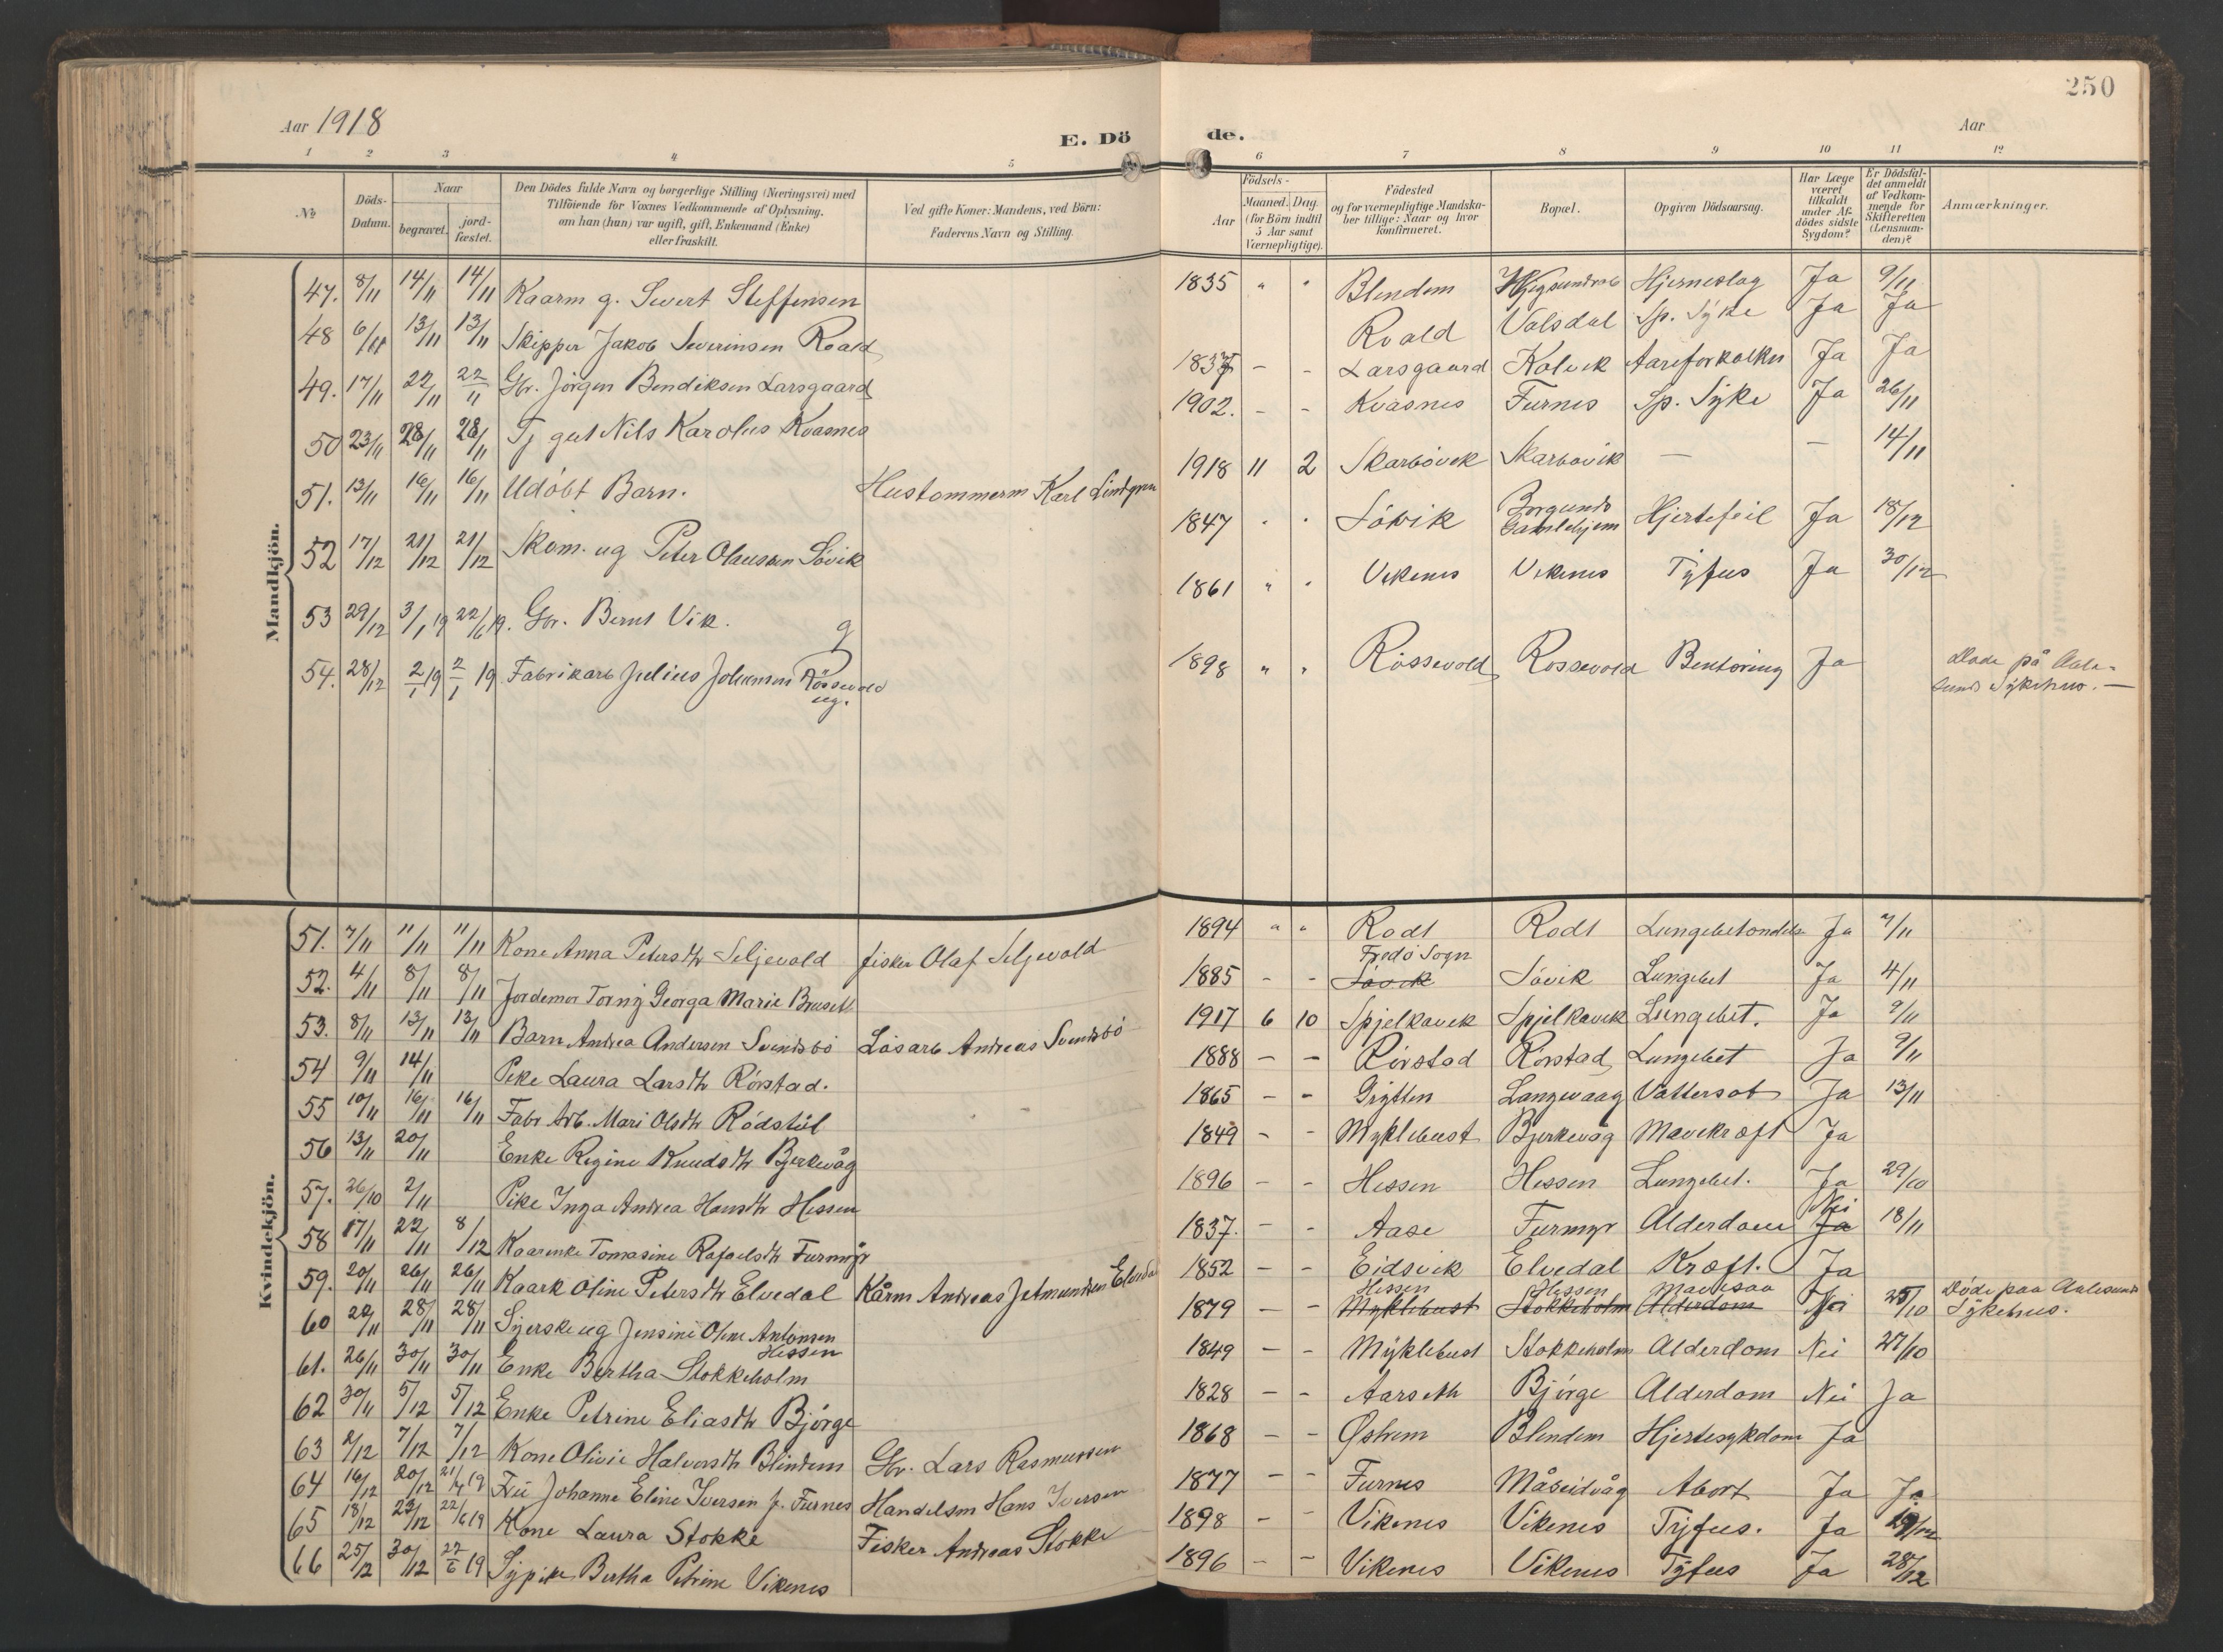 250
Aar 1918
E. Dö
de.
Aar
1 2 3 4 5 6 7 8 9 10 11 12
No
Döds-Datum.
Naar
begravet.
jord-fæstet.
Den Dödes fulde Navn og borgerlige Stilling (Næringsvei) med
Tilföiende for Voxnes Vedkommende af Oplysning,
om han (hun) var ugift, gift, Enkemand (Enke)
eller fraskilt.
Ved gifte Koner: Mandens, ved Börn:
Faderens Navn og Stilling.
Födsels-
Aar
Maaned. Dag.
(for Börn indtil
5 Aar samt
Værnepligtige).
Födested
og for værnepligtige Mandska-
ber tillige: Naar og hvor
konfirmeret.
Bopæl.
Opgiven Dödsaarsag.
Har Læge
været
tilkaldt
under Af-
dödes sidste
Sygdom?
Er Dödsfal-
det anmeldt
af Vedkom-
mende for
Skifteretten
(Lensman-
den)?
Anmærkninger.
Mandkjön.
47. 8/11 14/11 14/11 Kaarm g. Sivert Steffensen 1835 " " Blendem Hjerneslag Ja 9/11
48 6/11 13/11 13/11 Skipper Jakob Severinsen Roald Roald Valsdal Sp. Syke Ja Ja
49. 17/11 22/11 22/11 Gbr. Jörgen Bendiksen Larsgaard 1837 - - Larsgaard Kolvik Aareforkalkn Ja Ja
50 23/11 28/11 28/11 Tj gut Nils Karolus Kvasnes 1902. - - Kvasnes Furnes Sp. Syke Ja 26/11
51. 13/11 16/11 16/11 Udöbt Barn. Hustömmerm Karl Lindgren 1918 11 2 Skarbövik Skarbövik — — 14/11
52 17/12 21/12 21/12 Skom. ug Peter Olaussen Sövik 1847 " " Sövik Borgunds Gamlehjem Hjertefeil Ja 18/12
53 29/12 3/1 19 22/6 19. Gbr. Bernt Vik. g 1861 " " Vikenes Vikenes Tyfus Ja 30/12
54. 28/12 2/1 19 2/1 19 Fabrikarb Julius Johannsen Rössevold ug. 1898 " " Rössevold Rossevold Ja
Döde på Aale-
sunds Sykehus. —
Kvindekjön.
51. 7/11 11/11 11/11 Kone Anna Petersdtr Seljevold fisker Olaf Seljevold 1894 " " Rödt Rödt Lungebetændelse Ja 7/11
52. 4/11 8/11 8/11 Jordemor Torny Georga Marie Bruset 1885 - - Fredö Sogn Sövik Sövik Lungebet Ja 4/11
53. 8/11 13/11 13/11 Barn Andrea Andersen Svendsbö Lösarb Andreas Svendsbö 1917 6 10 Spjelkavik Spjelkavik Lungebet. Ja 9/11
54 9/11 14/11 Pike Laura Larsdtr Rörstad. 1888 - - Rörstad Rorstad Lungebet Ja 9/11
55 10/11 16/11 16/11 Fabr Arb. Mari Olsdtr Rödstöl 1865 - - Grytten Langevaag Vattersot Ja 13/11
56 13/11 20/11 Enke Regine Knudsdtr Bjerkevåg 1849 - - Myklebust Bjerkevåg Mavekræft Ja
57. 26/10 2/11 Pike Inga Andrea Hansdtr Hessen 1896 - - Hessen Hessen Lungebet. Ja 29/10
58 17/11 22/11 8/12 Kaarenke Tomasine Rafaelsdtr Furmyr 1837. - - Aase Furmyr Alderdom Nei Ja 18/11
59. 20/11 26/11 26/11 Kaark Oline Petersdtr Elvedal Kårm Andreas Jetmundsen Elvedal 1852 - - Eidsvik Elvedal Kræft. Ja
60 22/11 28/11 28/11 Syerske ug Jensine Oline Antonsen Hessen 1879 - - Hessen Myklebust Hessen Stokkeholm Mavesaa Alderdom 25/10 Döde paa Aalesunds Sykehus.
61. 26/11 30/11 30/11 Enke Bertha Stokkeholm 1849 - - Myklebust Stokkeholm Alderdom Nei 27/10
62 30/11 5/12 5/12 Enke Petrine Eliasdtr Bjørge 1828 - - Aarseth Bjørge Alderdom Nei Ja
63 2/12 7/12 7/12 Kone Olivie Halvorsdtr Blindem Gbr. Lars Rasmussen 1868 - - Østrem Blendem Hjertesykdom Ja
64 16/12 20/12 21/4 19 Fru Johanne Eline Iversen f. Furnes Handelsm Hans Iversen 1877 - - Furnes Måseidvåg Abort Ja Ja
65 18/12 23/12 22/6 19 Kone Laura Stokke Fisker Andreas Stokke 1898 - - Vikenes Vikenes Tyfus. Ja 19/12
66 25/12 30/12 22/6 19 Sypike Bertha Petrine Vikenes 1896 - - Vikenes Vikenes Tyfus Ja 28/12